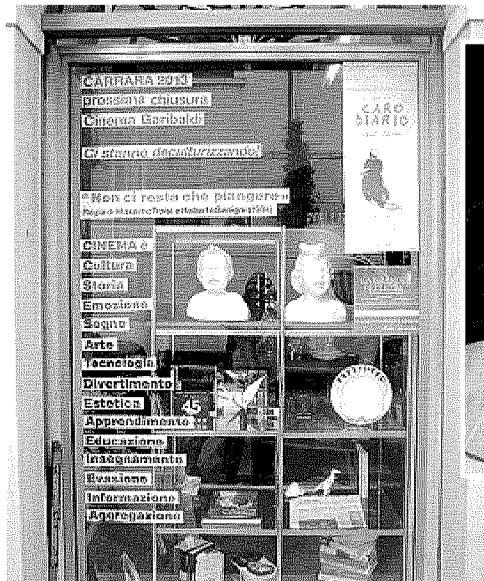 CARRARA 2013
prossima chiusura
Cinema Garibaldi
Ci stanno deculturizzando!
"Non ci resta che piangere"
CINEMA è
Cultura
Storia
Emozione
Sogno
Arte
Tecnologia
Divertimento
Estetica
Apprendimento
Educazione
Insegnamento
Evasione
Informazione
Aggregazione
CARO
DIARIO